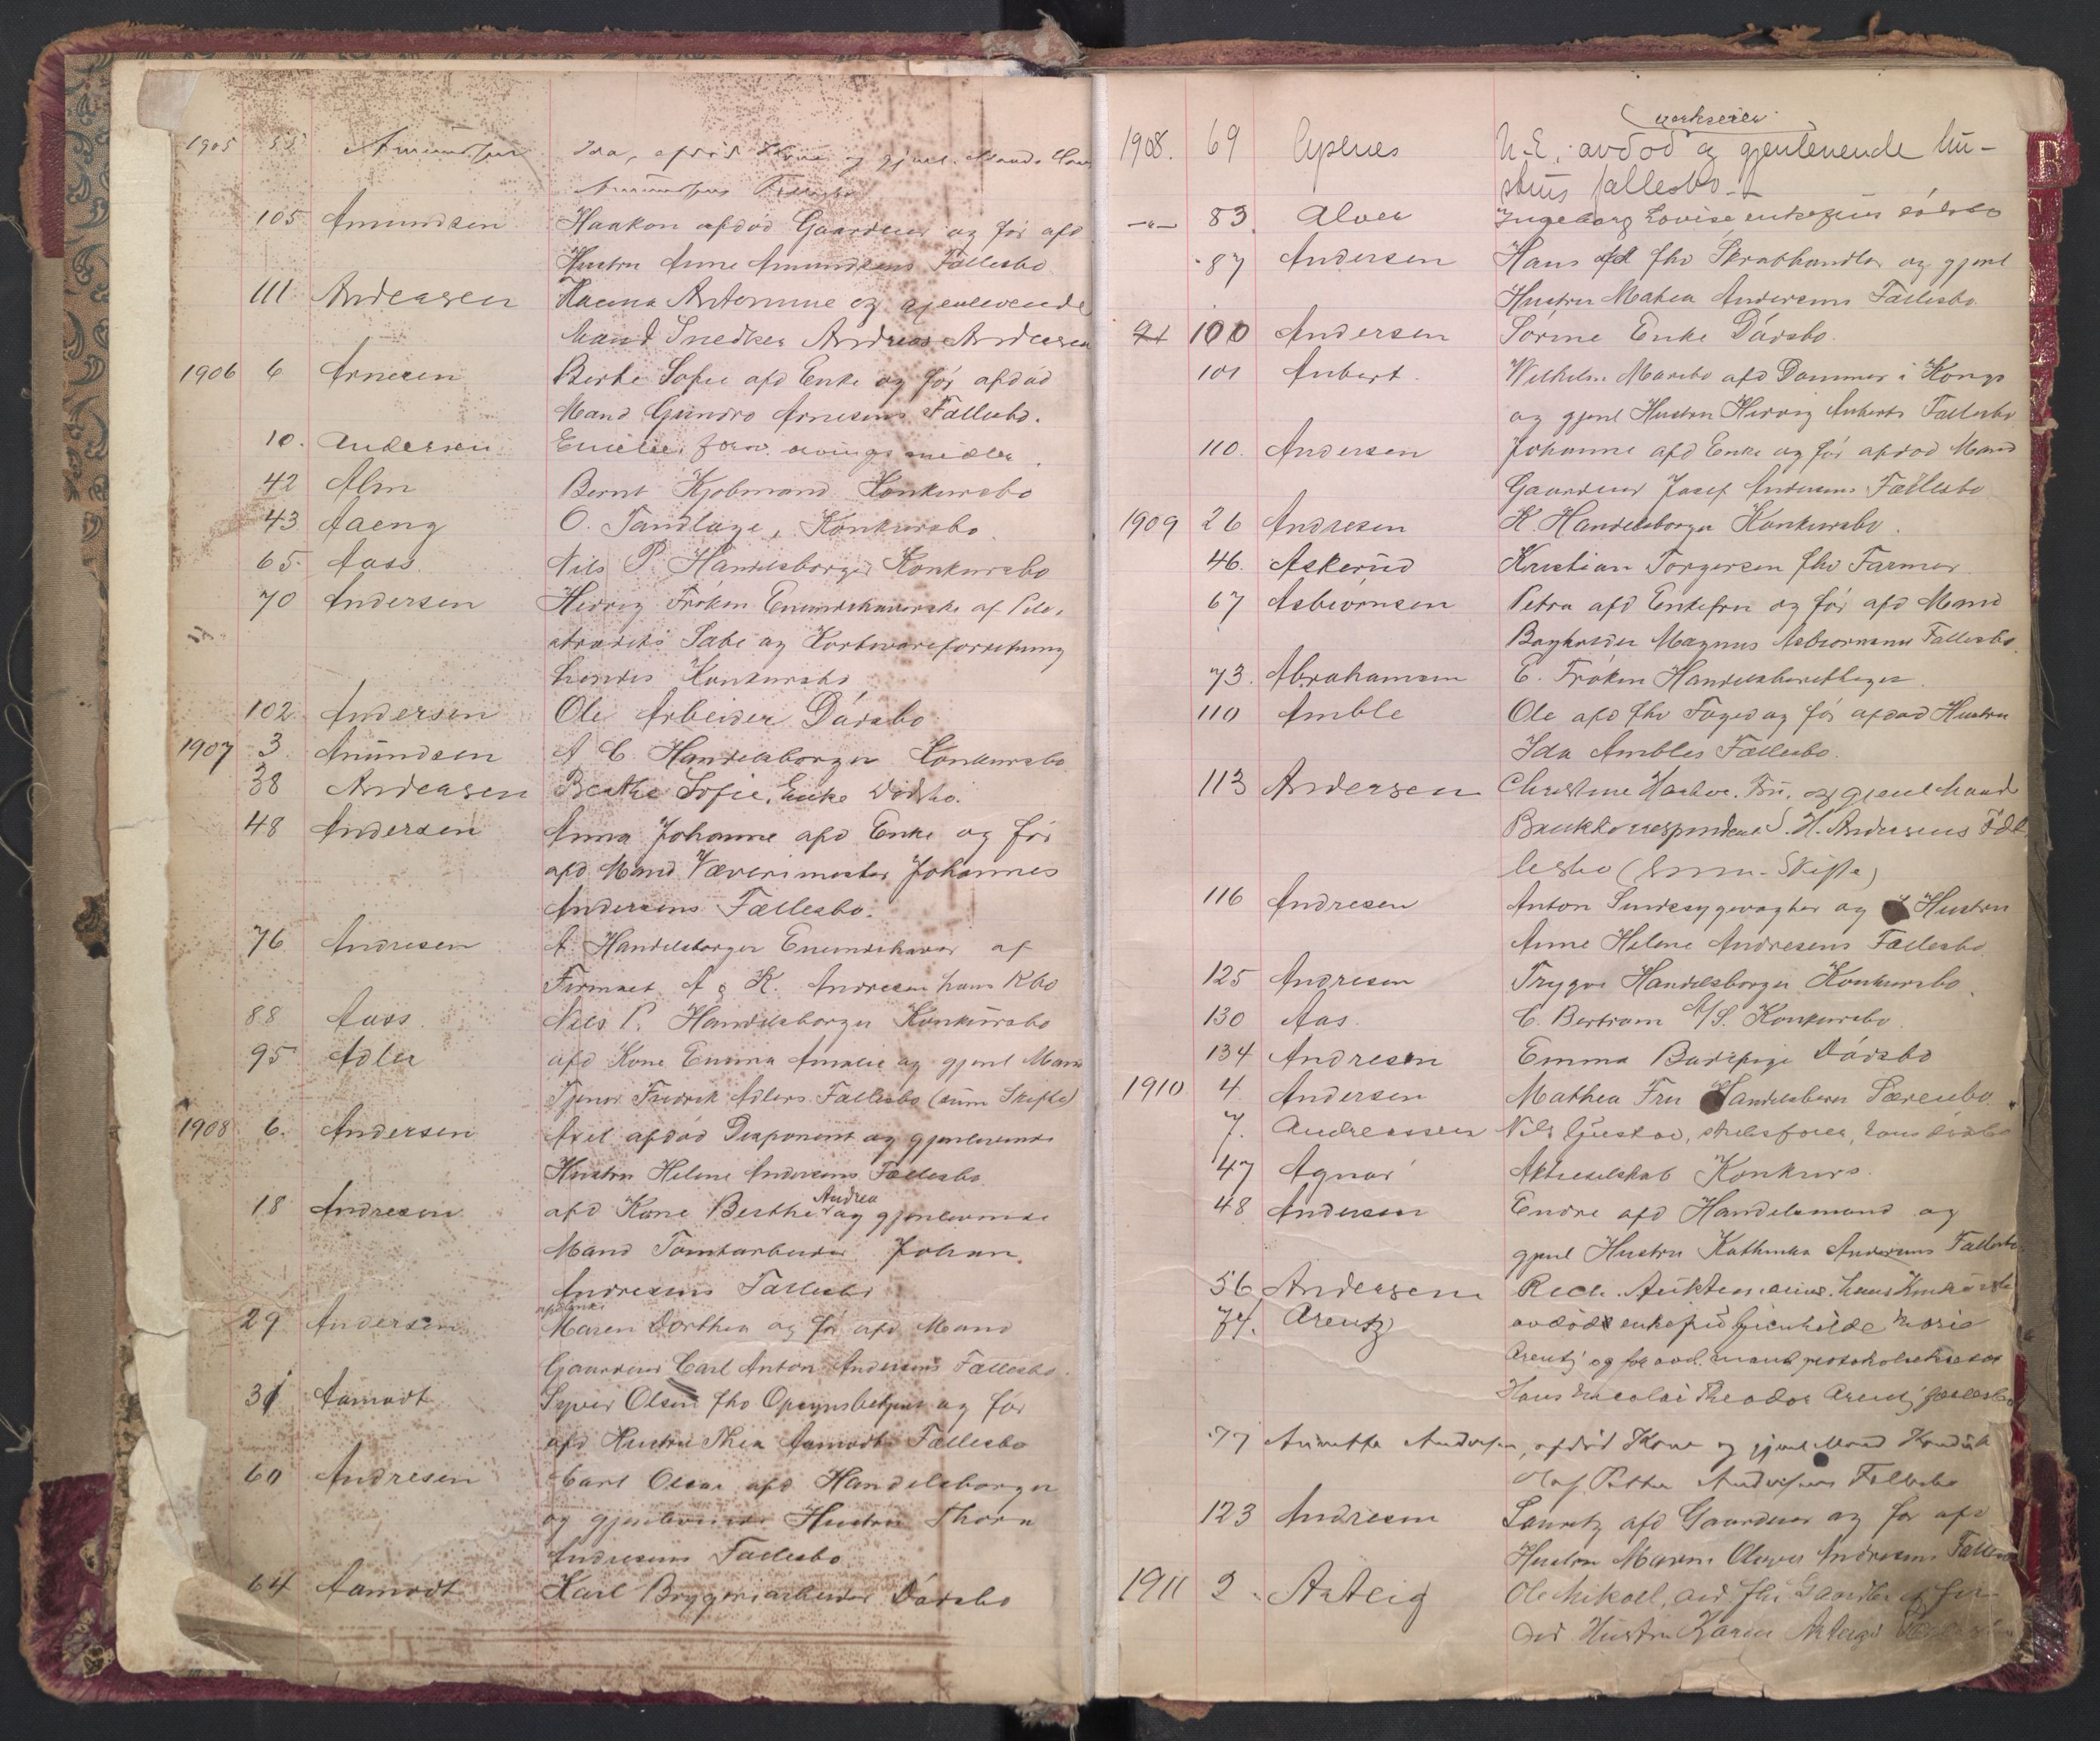 1905 55 Amundsen Ida, afdød Kone og gjenl. Mands
Amundsens Fællesbo
105 Amundsen Haakon afdød Gaardeier og før afd
Hustru Anne Amundsens Fællesbo
111 Andersen Hanna Antonmine og gjenlevende
Mand Snedker Andreas Andersen
1906 6 Arnesen Berte Sofie afd Enke og før afdød
Mand Gundro Arnesens Fællesbo.
10. Andersen Emilie, forsv. arvings midler.
42 Alm Bernt Kjøbmand Konkursbo
43 Aaeng O. Tandlæge, Konkursbo.
65 Aass Nils P. Handelsborger Konkursbo
70 Andersen Hedvig Frøken Eneindehaverske af
Sabe og Kortevareforretning
hendes Konkursbo
102 Andersen Ole Arbeider Dødsbo
1907 3 Amundsen A C Handelsborger Konkursbo
38 Andersen Beathe Sofie, Enke Dødsbo.
48 Andersen Anna Johanne afd Enke og før
afd Mand Væverimester Johannes
Andersens Fællesbo.
76 Andresen A. Handelsborger Eneindehaver af
Firmaet A & K. Andresen hans Kbo
88 Aass Nils P. Handelsborger Konkursbo
95 Adler afd Kone Emma Amalie og gjenl Mand
Tjener Fredrik Adlers Fællesbo (sum Skifte)
1908 6. Andersen Axel afdød Disponent og gjenlevende
Hustru Helene Andersens Fællesbo.
18 Andresen afd Kone Berthe Andrea og gjenlevende
Mand Tomtarbeider Johan
Andresens Fællesbo
29 Andersen afd Enke Maren Dorthea og før afd Mand
Gaardeier Carl Anton Andersens Fællesbo.
31 Aamodt Syver Olsen fhv Opsynsbetjent og før
afd Hustru Thea Aamodts Fællesbo
60 Andresen Carl Oscar afd Handelsborger
og gjenlevende Hustru Thora
Andresens Fællesbo
64 Aamodt Karl Bryggeriarbeider Dødsbo
1908. 69 Apenes verkseier
N. E. avdød og gjenlevende hu-
strus fællesbo
—"— 83. Alver Ingeborg Lovise enkefrus dødsbo
87 Andersen Hans afd fhv Skrabhandler og gjenl
Hustru Mathea Andersens Fællesbo.
91 100 Andersen Sørine Enke Dødsbo.
101 Aubert. Wilhelm Maribo afd Dommer i Kongo
og gjenl Hustru Hedvig Auberts Fællesbo
110. Andersen Johanne afd Enke og før afdød Mand
Gaardeier Josef Andersens Fællesbo
1909 26 Andresen K. Handelsborger Konkursbo.
46. Askerud Kristian Torgersen fhv Farmer
67 Asbiørnsen Petra afd Enkefru og før afd Mand
Bogholder Magnus Asbiørnsens Fællesbo.
73. Abrahamsen E. Frøken Handelsberettiget.
110 Amble Ole afd fhv Foged og før afdød Hustru
Ida Ambles Fællesbo.
113 Andersen Christine Fru, og gjenl Mand
Bankkorrespondent S. H. Andersens Fæl
lesbo (Summ.-Skifte)
116 Andresen Anton Sindssygevogter og Hustru
Anne Helene Andresens Fællesbo.
125 Andresen Trygve Handelsborger Konkursbo.
130 Aas. C. Bertram A/S. Konkursbo.
134 Andresen Emma Badepige Dødsbo
1910 4 Andersen Mathea Fru Handelsberet Særeiebo.
7. Andreassen Nils Gustav, skibsfører, hans dødsbo
47 Agnar Aktieselskab Konkurs.
48 Andersen Endre afd Handelsmand og
gjenl Hustru Kathinka Andersens Fællesbo
56 Andersen hans Konkursbo
74. Arentz avdøde enkefru Gunhilde Marie
Arentz og før avd. mand protokolsekretær
Hans Nicolai Theodor Arentz fællesbo
77 Annette Andersen, afdød Kone og gjenl Mand Konduk
Olaf Petter Andersens Fællesbo
123 Andresen Lauritz afd Gaardeier og før afd
Hustru Maren Andresens Fællesbo
1911 2. Asteig Ole Mikael, avd. fhv. og før
død Hustru Karen Asteigs